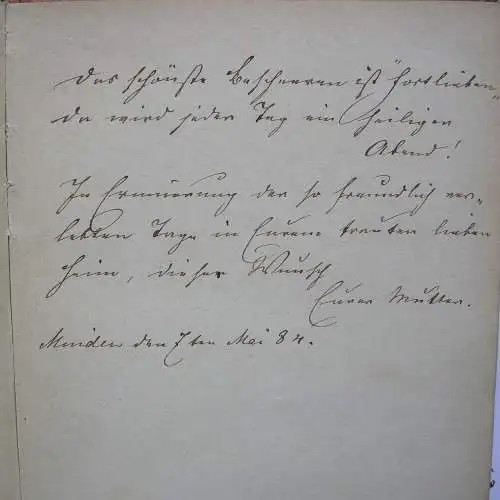 Das schönste Bescheeren ist "Fortlieben"
da wird jeder Tag ein heiliger
Abend!
In Erinnerung der so freundlich ver-
lebten Tage in Eurem trauten lieben
Heim, dieser Wunsch
Eurer Mutter.
Minden den 7ten Mai 84.